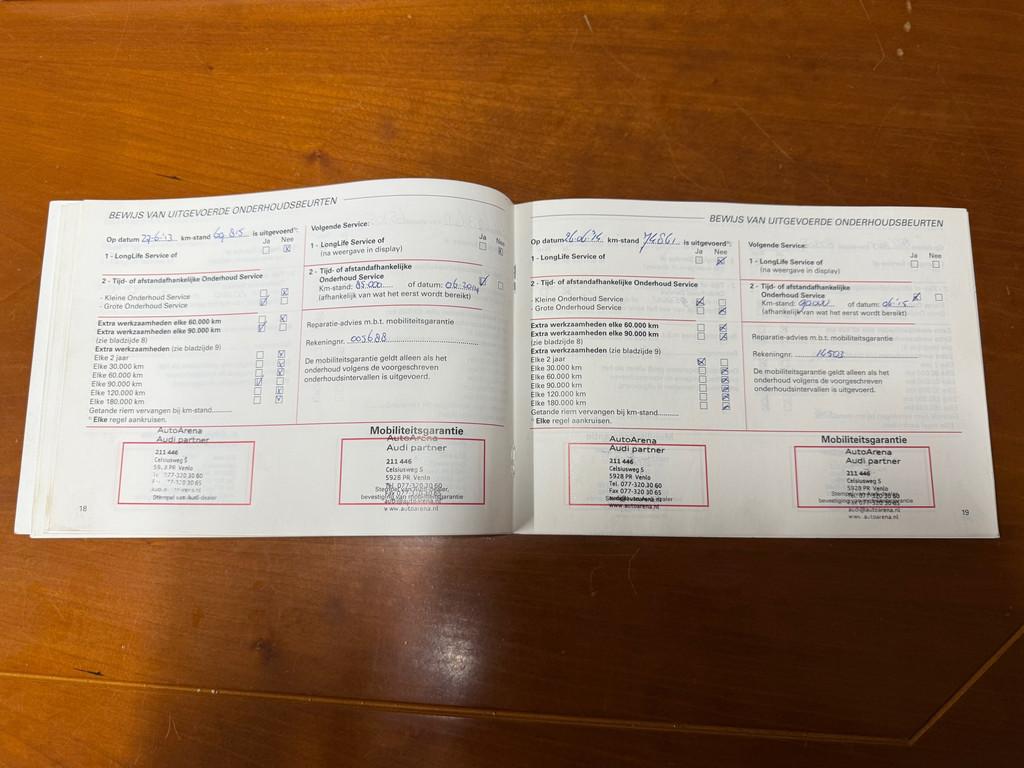 BEWIJS VAN UITGEVOERDE ONDERHOUDSBEURTEN
Op datum 27-6-'13 km-stand 69 815 is uitgevoerd¹⁾:
Ja Nee
1 - LongLife Service of
2 - Tijd- of afstandafhankelijke Onderhoud Service
- Kleine Onderhoud Service
- Grote Onderhoud Service
Extra werkzaamheden elke 60.000 km
Extra werkzaamheden elke 90.000 km
(zie bladzijde 8)
Extra werkzaamheden (zie bladzijde 9)
Elke 2 jaar
Elke 30.000 km
Elke 60.000 km
Elke 90.000 km
Elke 120.000 km
Elke 180.000 km
Getande riem vervangen bij km-stand..........
¹⁾ Elke regel aankruisen.
AutoArena
Audi partner
211 446
Celsiusweg 5
PR Venlo
077-320 30 60
Stempel van Audi-dealer
18
Volgende Service:
Ja Nee
1 - LongLife Service of
(na weergave in display)
2 - Tijd- of afstandafhankelijke
Onderhoud Service
Km-stand: 85.000 of datum: 06.2014
(afhankelijk van wat het eerst wordt bereikt)
Reparatie-advies m.b.t. mobiliteitsgarantie
Rekeningnr. 003688
De mobiliteitsgarantie geldt alleen als het
onderhoud volgens de voorgeschreven
onderhoudsintervallen is uitgevoerd.
Mobiliteitsgarantie
AutoArena
Audi partner
211 446
Celsiusweg 5
5928 PR Venlo
Tel. 077-320 30 60
Stempel van Audi-dealer,
Fax 077-320 30 65
bevestiging van mobiliteitsgarantie
audi@autoarena.nl
www.autoarena.nl
BEWIJS VAN UITGEVOERDE ONDERHOUDSBEURTEN
Op datum 26.06.'14 km-stand 74861 is uitgevoerd¹⁾:
Ja Nee
1 - LongLife Service of
2 - Tijd- of afstandafhankelijke Onderhoud Service
- Kleine Onderhoud Service
- Grote Onderhoud Service
Extra werkzaamheden elke 60.000 km
Extra werkzaamheden elke 90.000 km
(zie bladzijde 8)
Extra werkzaamheden (zie bladzijde 9)
Elke 2 jaar
Elke 30.000 km
Elke 60.000 km
Elke 90.000 km
Elke 120.000 km
Elke 180.000 km
Getande riem vervangen bij km-stand..........
¹⁾ Elke regel aankruisen.
AutoArena
Audi partner
211 446
Celsiusweg 5
5928 PR Venlo
Tel. 077-320 30 60
Fax 077-320 30 65
www.autoarena.nl
Volgende Service:
Ja Nee
1 - LongLife Service of
(na weergave in display)
2 - Tijd- of afstandafhankelijke
Onderhoud Service
Km-stand: 90000 of datum: 06'15
(afhankelijk van wat het eerst wordt bereikt)
Reparatie-advies m.b.t. mobiliteitsgarantie
Rekeningnr. 14503
De mobiliteitsgarantie geldt alleen als het
onderhoud volgens de voorgeschreven
onderhoudsintervallen is uitgevoerd.
Mobiliteitsgarantie
AutoArena
Audi partner
211 446
Celsiusweg 5
5928 PR Venlo
Tel. 077-320 30 60
bevestiging van mobiliteitsgarantie
audi@autoarena.nl
www.autoarena.nl
19